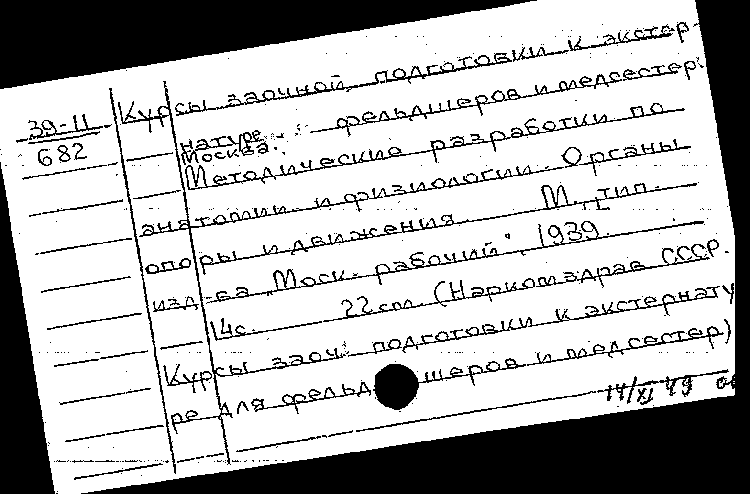 39-11
682
Курсы заочной подготовки к экстер-
натуре фельдшеров и медсестер
Москва.
Методические разработки по
анатомии и физиологии. Органы
опоры и движения. М., тип.
изд-ва „Моск. рабочий", 1939.
14с. 22 см. (Наркомздрав СССР.
Курсы заоч. подготовки к экстернату
ре для фельдшеров и медсестер)
14/XI 49